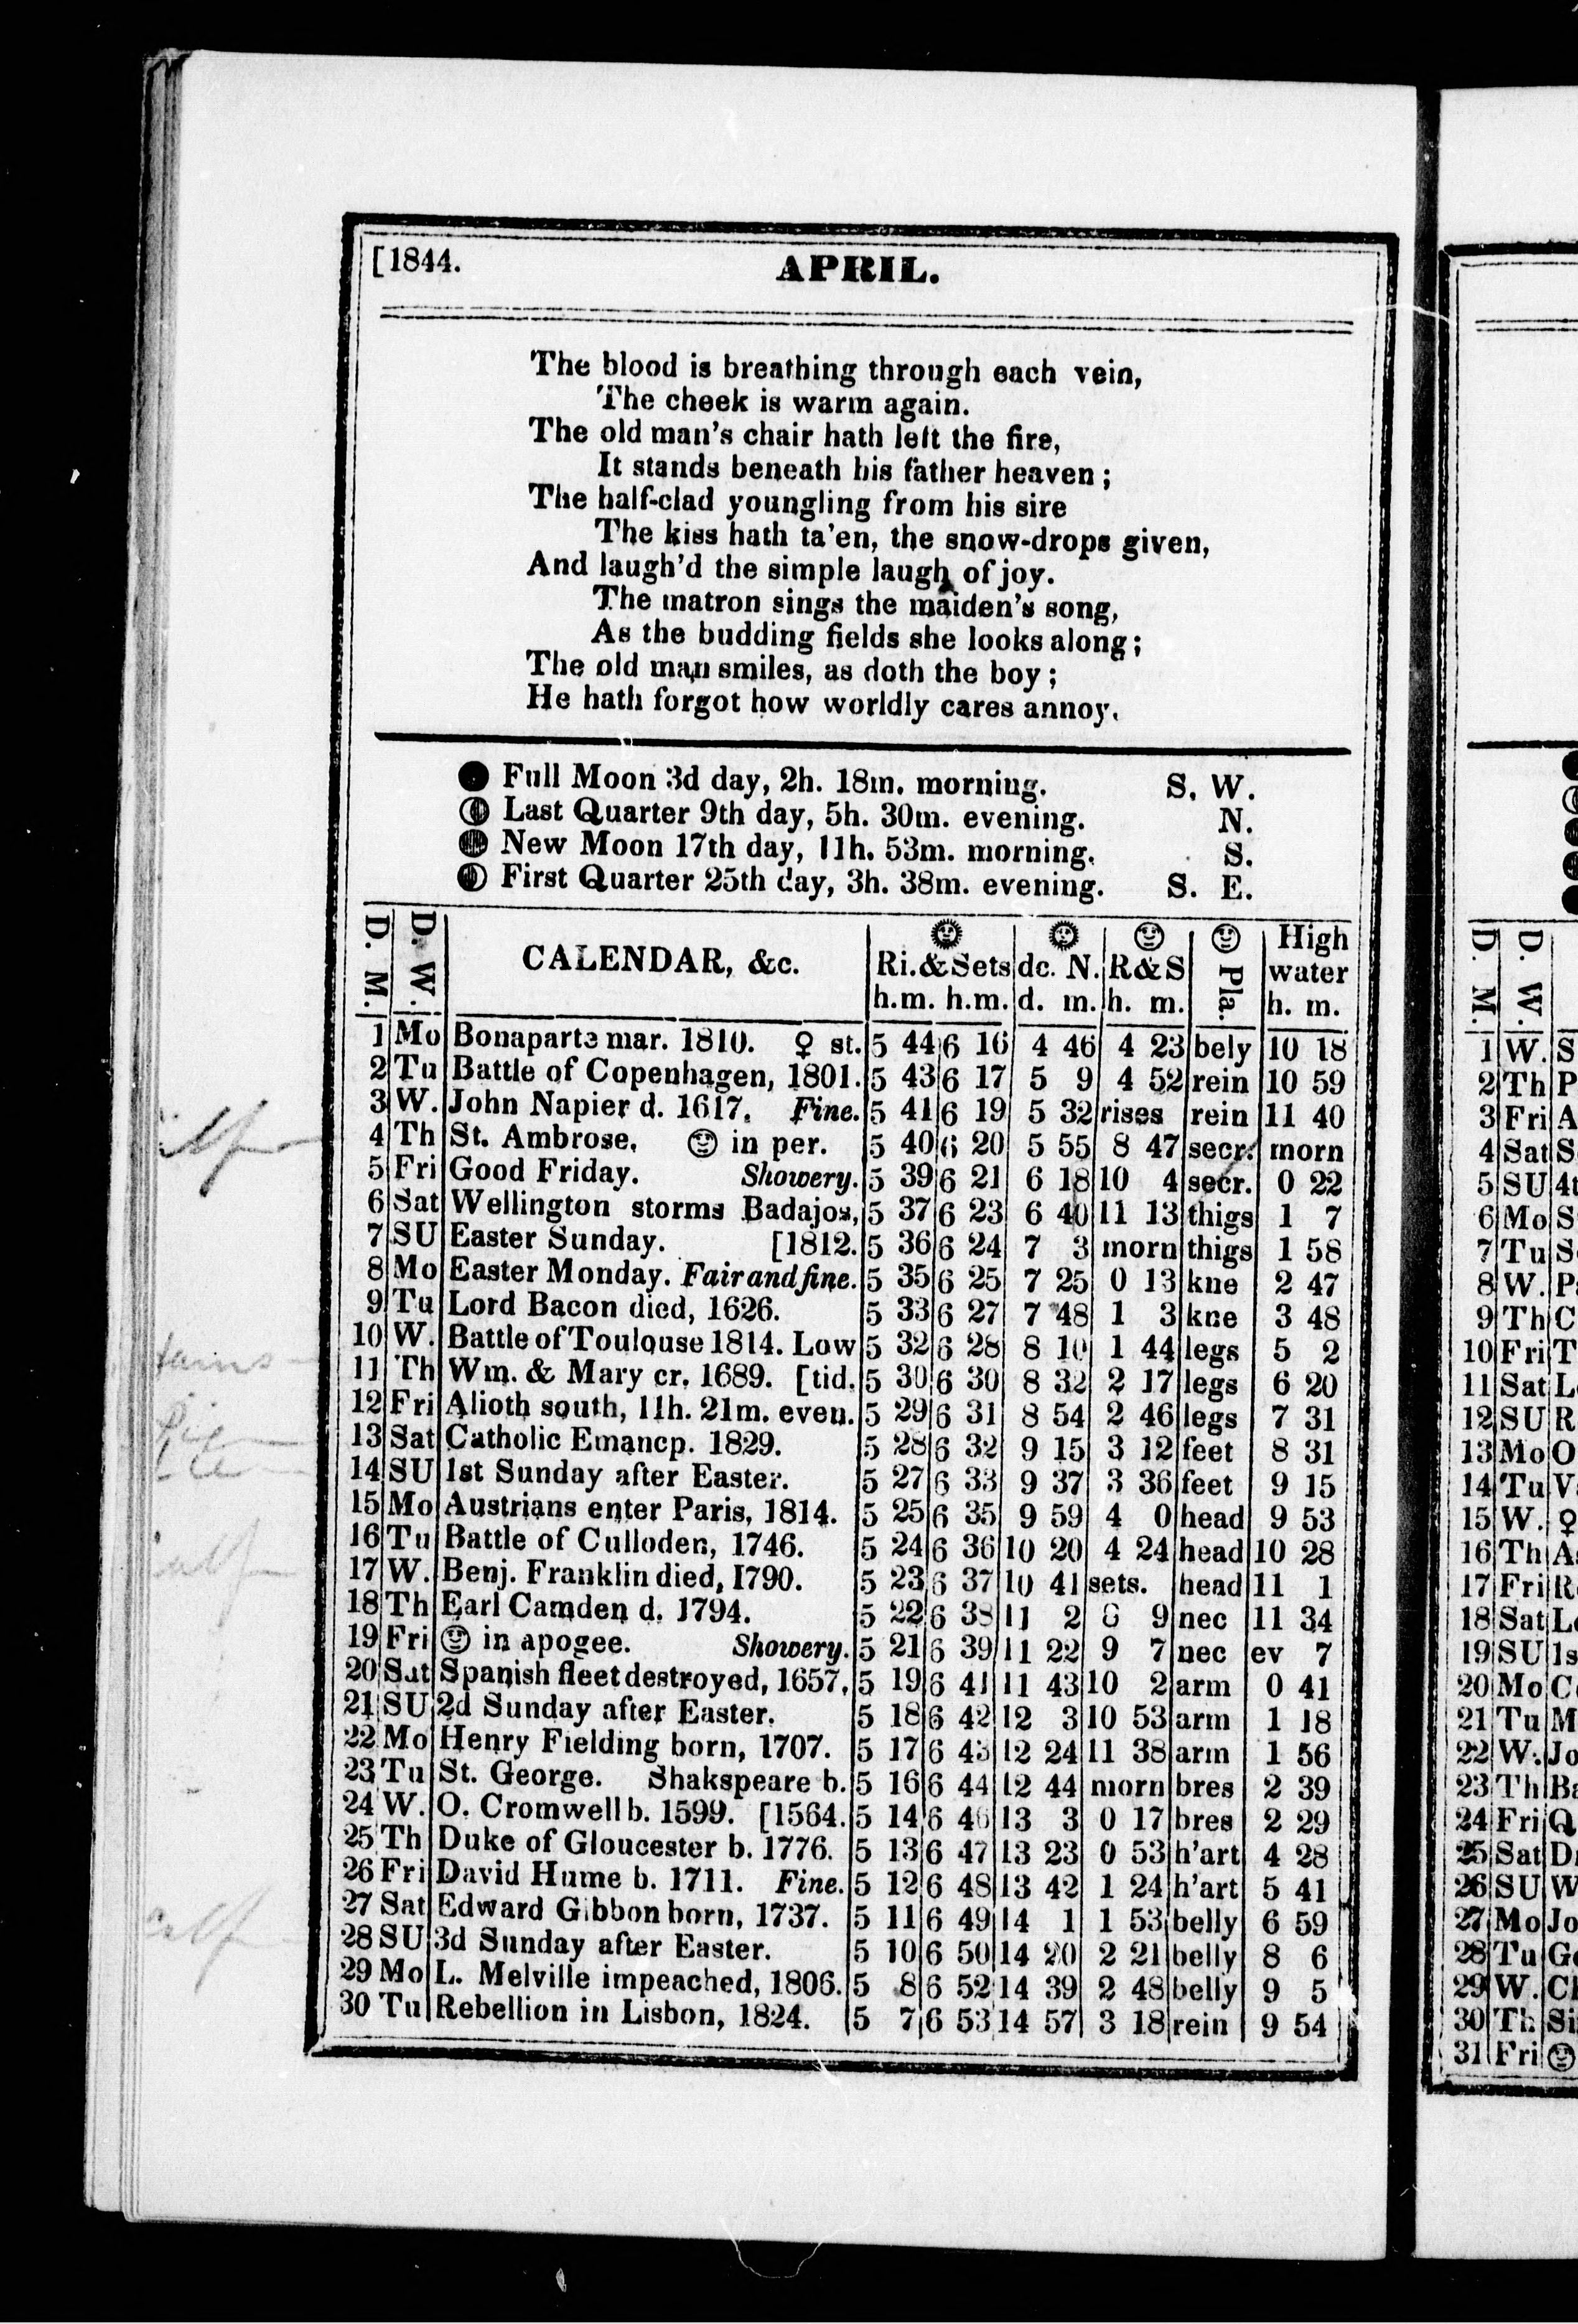 [1844.
APRIL.
The blood is breathing through each vein,
The cheek is warm again.
The old man's chair hath left the fire,
It stands beneath his father heaven;
The half-clad youngling from his sire
The kiss hath ta'en, the snow-drops given,
And laugh'd the simple laugh of joy.
The matron sings the maiden's song,
As the budding fields she looks along;
The old man smiles, as doth the boy;
He hath forgot how worldly cares annoy.
Full Moon 3d day, 2h. 18m. morning. S. W.
Last Quarter 9th day, 5h. 30m. evening. N.
New Moon 17th day, 11h. 53m. morning. S.
First Quarter 25th day, 3h. 38m. evening. S. E.
D. M. D. W. CALENDAR, &c. Ri.&Sets dc. N. R&S Pla. High water
h.m. h.m. d. m. h. m. h. m.
1 Mo Bonaparte mar. 1810. ♀ st. 5 44 6 16 4 46 4 23 bely 10 18
2 Tu Battle of Copenhagen, 1801. 5 43 6 17 5 9 4 52 rein 10 59
3 W. John Napier d. 1617. Fine. 5 41 6 19 5 32 rises rein 11 40
4 Th St. Ambrose. in per. 5 40 6 20 5 55 8 47 secr. morn
5 Fri Good Friday. Showery. 5 39 6 21 6 18 10 4 secr. 0 22
6 Sat Wellington storms Badajos, 5 37 6 23 6 40 11 13 thigs 1 7
7 SU Easter Sunday. [1812. 5 36 6 24 7 3 morn thigs 1 58
8 Mo Easter Monday. Fair and fine. 5 35 6 25 7 25 0 13 kne 2 47
9 Tu Lord Bacon died, 1626. 5 33 6 27 7 48 1 3 kne 3 48
10 W. Battle of Toulouse 1814. Low 5 32 6 28 8 10 1 44 legs 5 2
11 Th Wm. & Mary cr. 1689. [tid. 5 30 6 30 8 32 2 17 legs 6 20
12 Fri Alioth south, 11h. 21m. even. 5 29 6 31 8 54 2 46 legs 7 31
13 Sat Catholic Emancp. 1829. 5 28 6 32 9 15 3 12 feet 8 31
14 SU 1st Sunday after Easter. 5 27 6 33 9 37 3 36 feet 9 15
15 Mo Austrians enter Paris, 1814. 5 25 6 35 9 59 4 0 head 9 53
16 Tu Battle of Culloden, 1746. 5 24 6 36 10 20 4 24 head 10 28
17 W. Benj. Franklin died, 1790. 5 23 6 37 10 41 sets. head 11 1
18 Th Earl Camden d. 1794. 5 22 6 38 11 2 9 nec 11 34
19 Fri in apogee. Showery. 5 21 6 39 11 22 9 7 nec ev 7
20 Sat Spanish fleet destroyed, 1657. 5 19 6 41 11 43 10 2 arm 0 41
21 SU 2d Sunday after Easter. 5 18 6 42 12 3 10 53 arm 1 18
22 Mo Henry Fielding born, 1707. 5 17 6 43 12 24 11 38 arm 1 56
23 Tu St. George. Shakspeare b. 5 16 6 44 12 44 morn bres 2 39
24 W. O. Cromwell b. 1599. [1564. 5 14 6 46 13 3 0 17 bres 2 29
25 Th Duke of Gloucester b. 1776. 5 13 6 47 13 23 0 53 h'art 4 28
26 Fri David Hume b. 1711. Fine. 5 12 6 48 13 42 1 24 h'art 5 41
27 Sat Edward Gibbon born, 1737. 5 11 6 49 14 1 1 53 belly 6 59
28 SU 3d Sunday after Easter. 5 10 6 50 14 20 2 21 belly 8 6
29 Mo L. Melville impeached, 1806. 5 8 6 52 14 39 2 48 belly 9 5
30 Tu Rebellion in Lisbon, 1824. 5 7 6 53 14 57 3 18 rein 9 54
D. M. D. W.
1 W. S
2 Th P
3 Fri A
4 Sat S
5 SU 4t
6 Mo S
7 Tu S
8 W. P
9 Th C
10 Fri T
11 Sat L
12 SU R
13 Mo O
14 Tu V
15 W. ♀
16 Th A
17 Fri R
18 Sat L
19 SU 1s
20 Mo C
21 Tu M
22 W. Jo
23 Th Ba
24 Fri Q
25 Sat D
26 SU W
27 Mo Jo
28 Tu Ge
29 W. Ch
30 Th Si
31 Fri